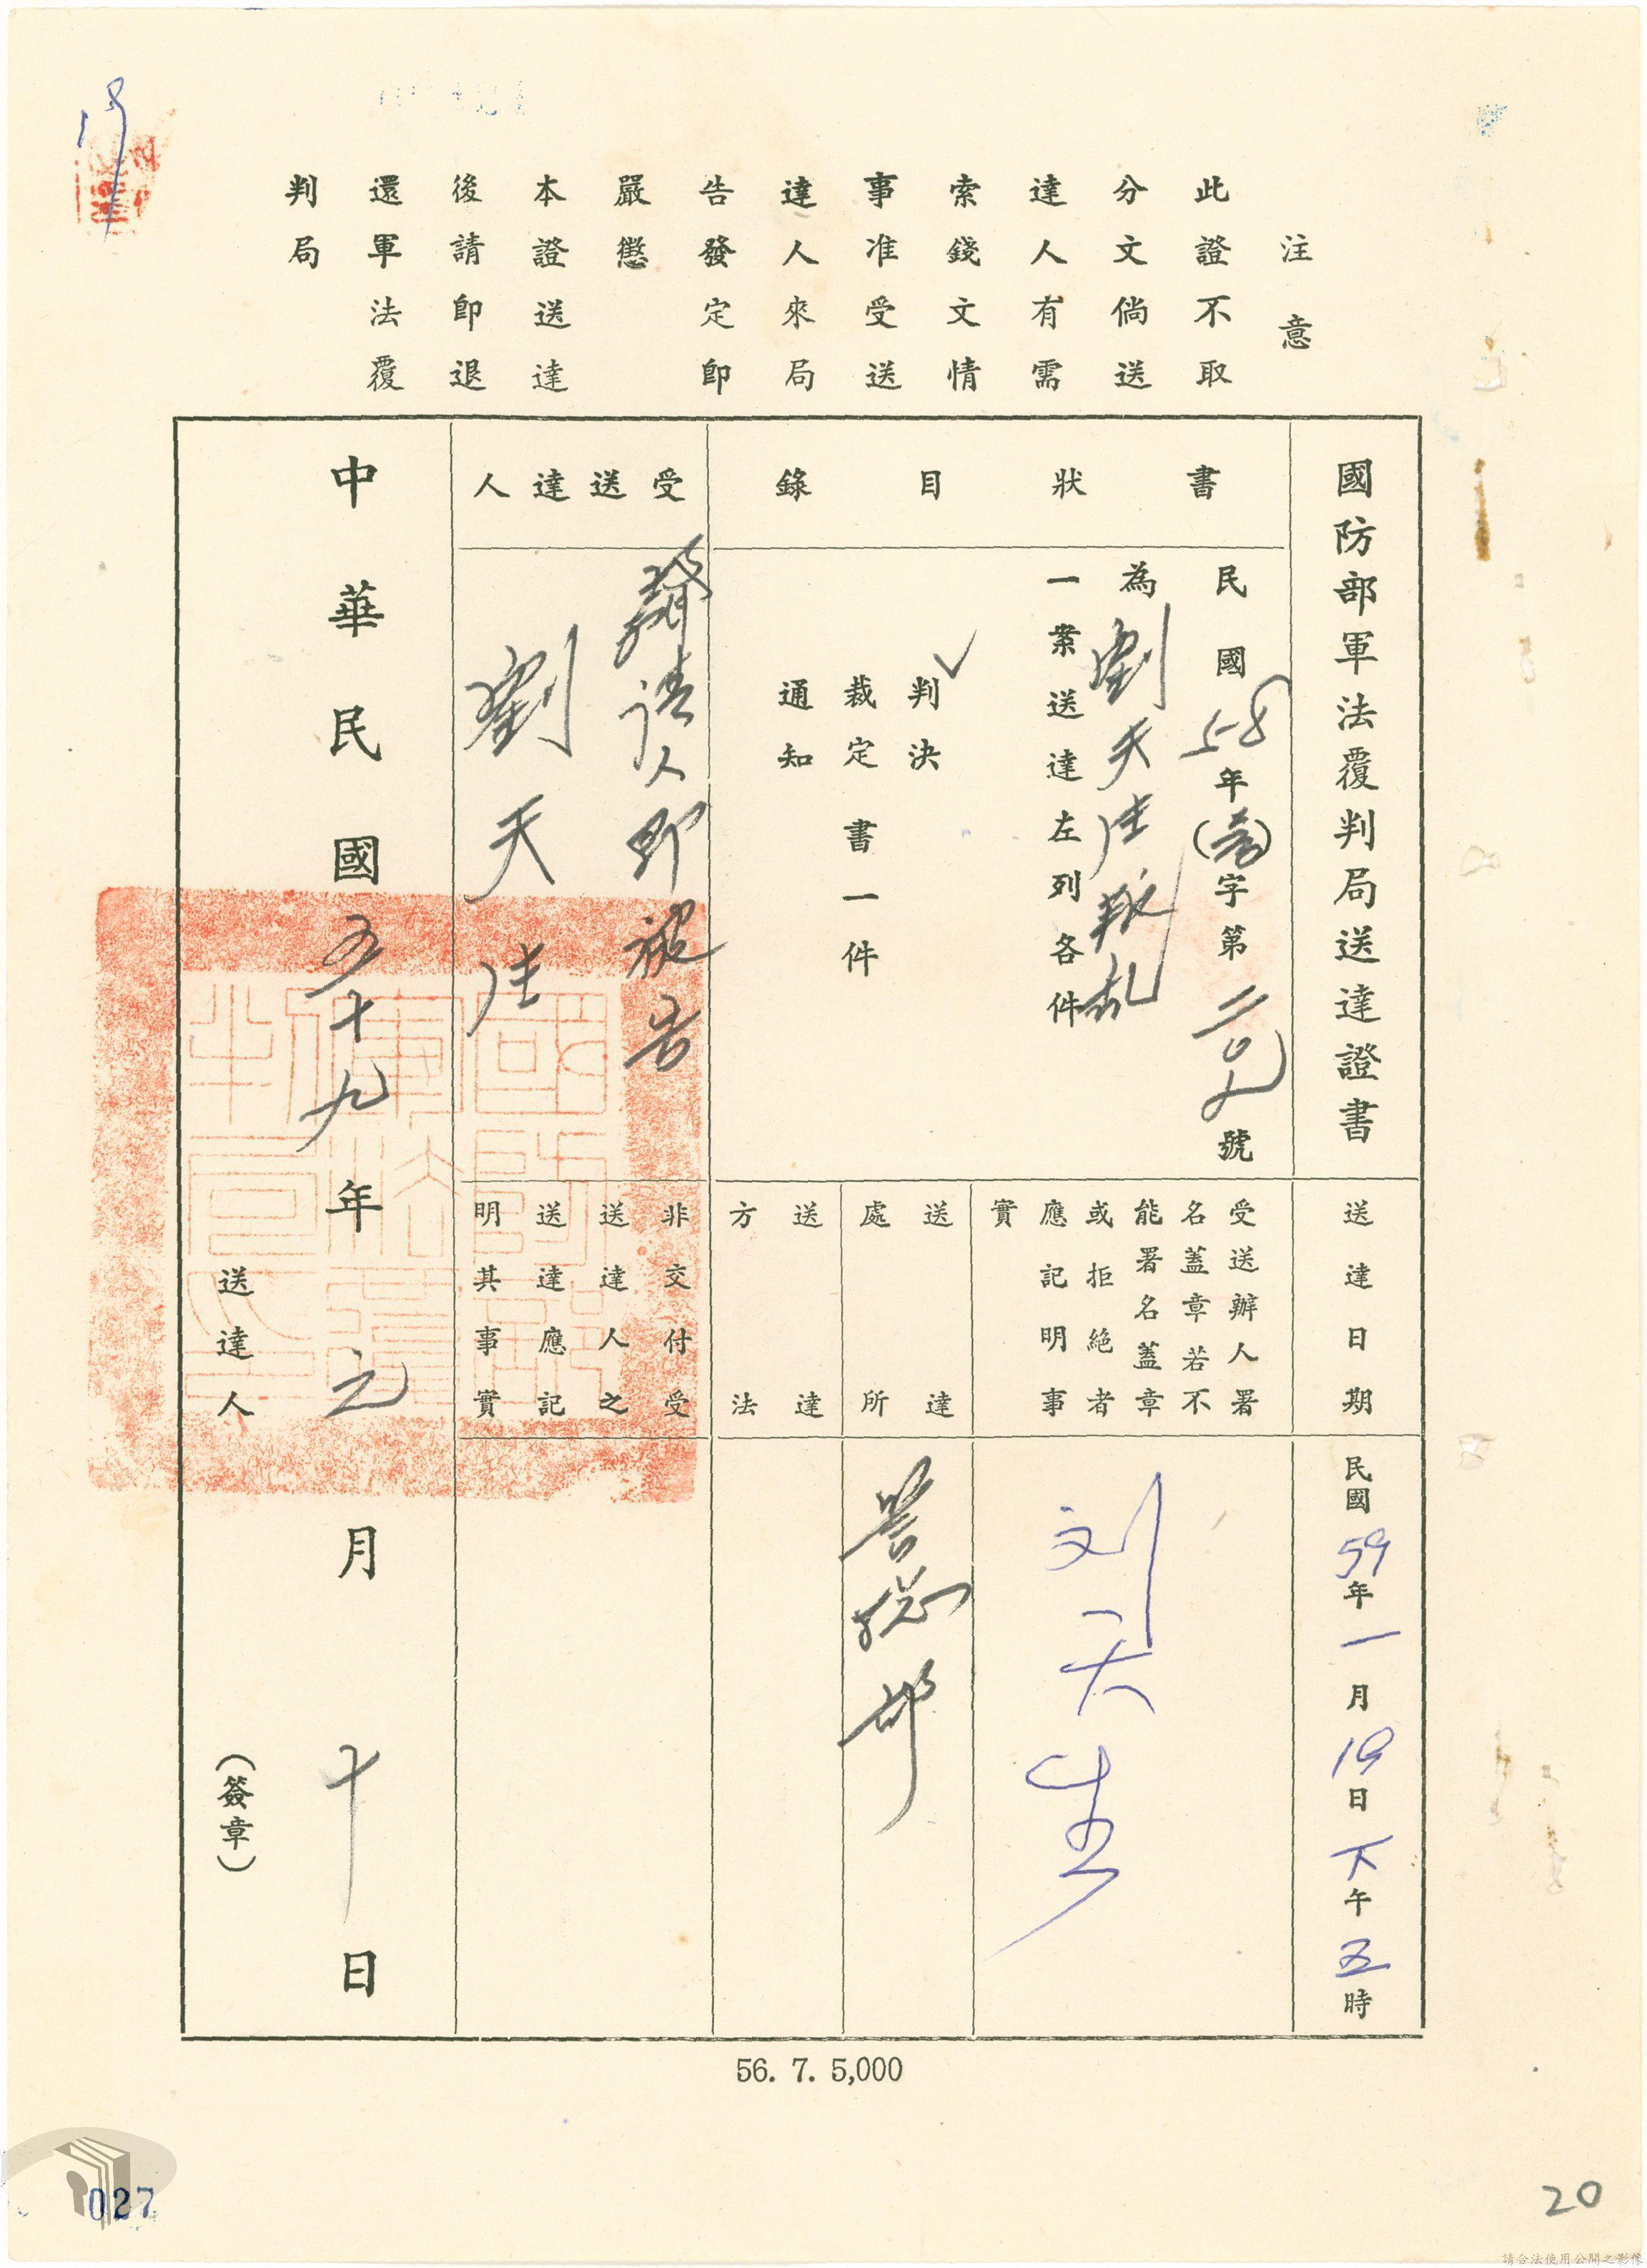 注意
此證不取
分文倘送
達人有需
索錢文情
事准受送
達人來局
告發定即
嚴懲
本證送達
後請即退
還軍法覆
判局
國防部軍法覆判局送達證書
書狀目錄
民國58年()字第號
為劉天生叛乱
一案送達左列各件
判決
裁定書一件
通知
受送達人
聲請人即被告
劉天生
送達日期
民國59年一月19日下午五時
受送辦人署
名蓋章若不
能署名蓋章
或拒絕者
應記明事
實
刘天生
送達
處所
警總部
送達
方法
非交付受
送達人之
送達應記
明其事實
中華民國五十九年元月十日
送達人(簽章)
56. 7. 5,000
027
20
請合法使用公開之影像